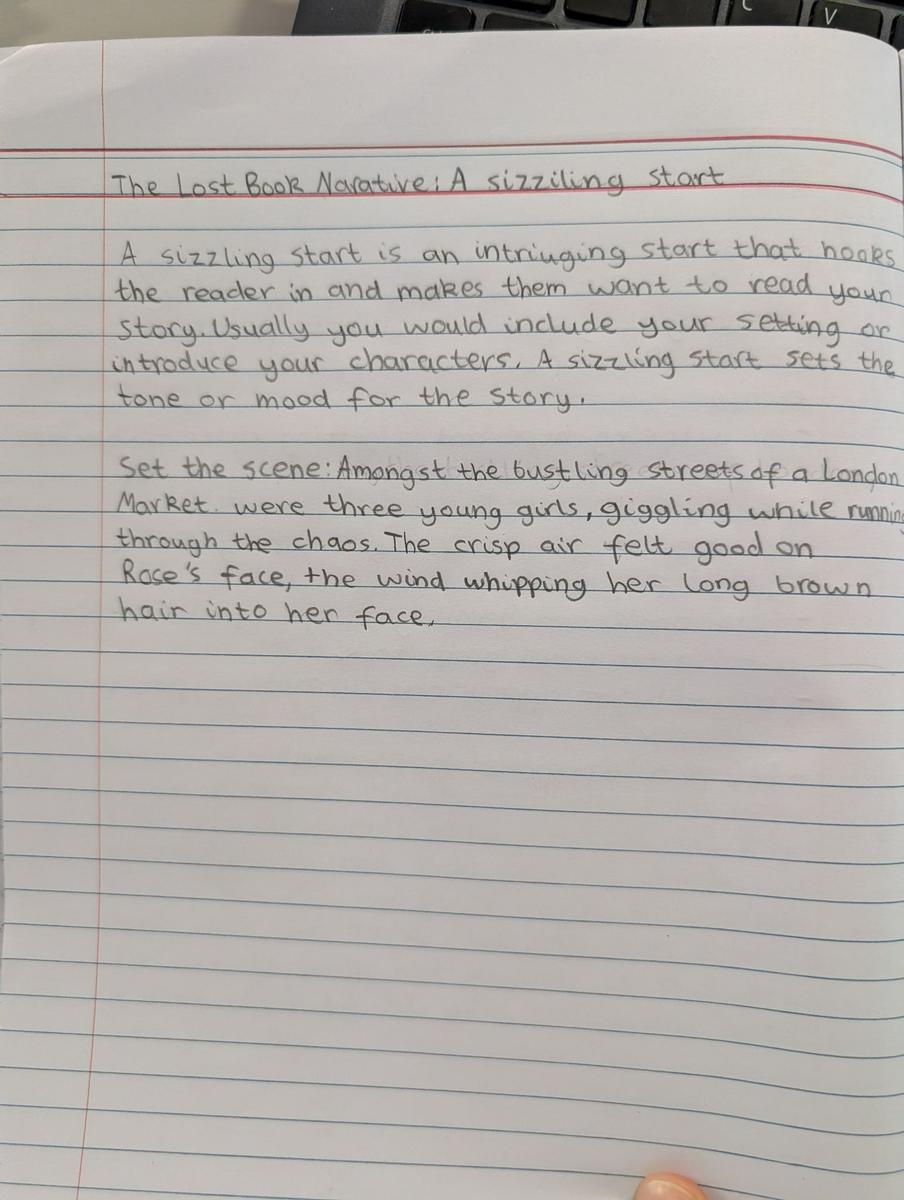 The Lost Book Narative: A sizziling start
A sizzling start is an intriuging start that hooks
the reader in and makes them want to read your
story. Usually you would include your setting or
introduce your characters. A sizzling start sets the
tone or mood for the story.
Set the scene: Amongst the bustling streets of a London
Market were three young girls, giggling while running
through the chaos. The crisp air felt good on
Rose's face, the wind whipping her long brown
hair into her face.
C
V